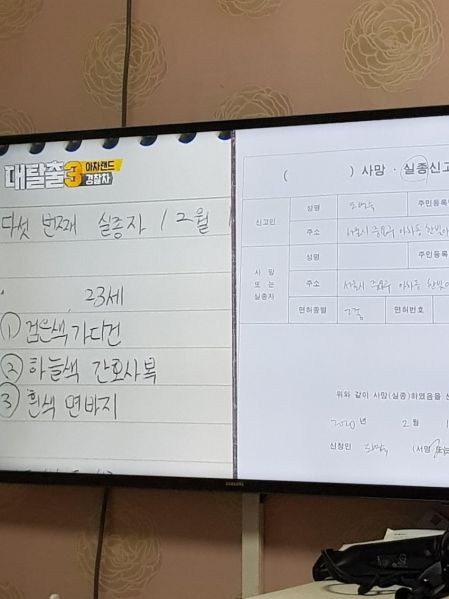 대탈출3
아차랜드
경찰차
다섯 번째 실종자 12월
23세
① 검은색 가디건
② 하늘색 간호사복
③ 흰색 면바지
( ) 사망 · 실종신고
신고인
성명
주민등록
주소
사 망
또 는
실종자
성명
주민등록
주소
면허종별
면허번호
위와 같이 사망(실종)하였음을 신
2020 년 2 월 1
신청인
(서명 또는
SAMSUNG